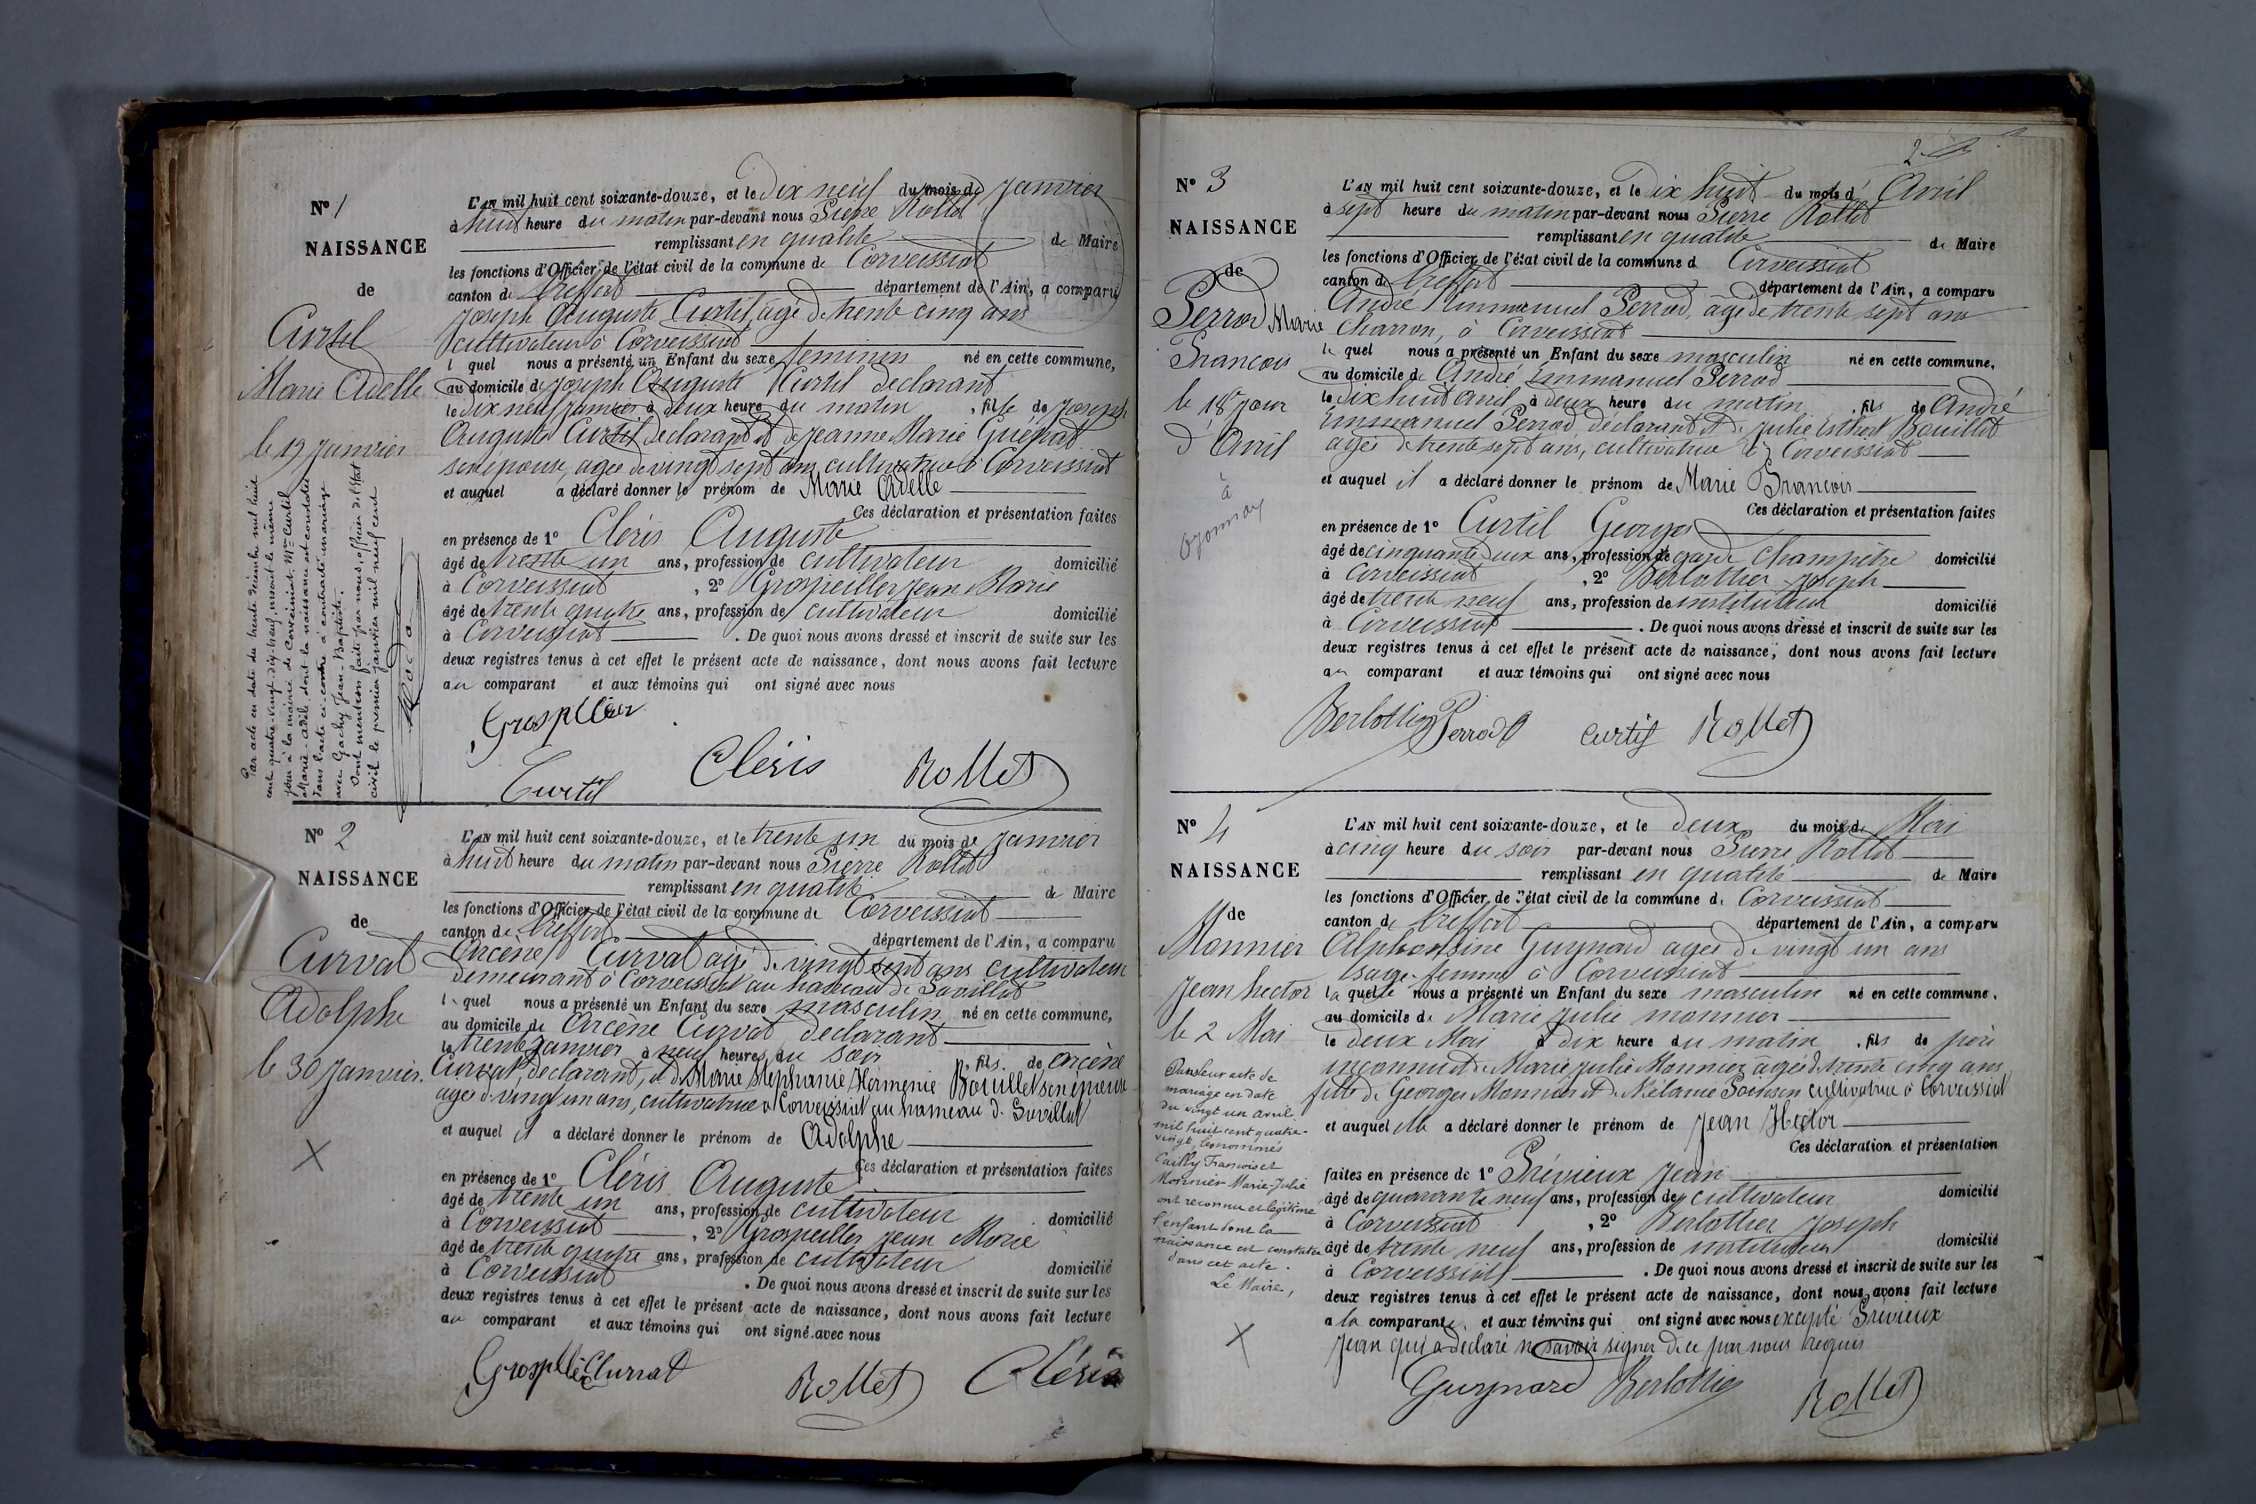 N° 1
NAISSANCE
de
Curtil
Marie Adelle
le 19 Janvier
Par acte en date du trente décembre mil huit
cent quatre-vingt-dix-neuf inscrit le même
jour à la mairie de Corveissiat, Mme Curtil
Marie-Adèle dont la naissance est constatée
dans l'acte ci-contre a contracté mariage
avec Gachy Jean-Baptiste.
Dont mention faite par nous, officier de l'état
civil le premier janvier mil neuf cent
L'AN mil huit cent soixante-douze, et le Dix neuf du mois de Janvier
à huit heure du matin par-devant nous Pierre Rollet
remplissant en qualité de Maire
les fonctions d'Officier de l'état civil de la commune de Corveissiat
canton de Treffort département de l'Ain, a comparu
Joseph Auguste Curtil, agé de trente cinq ans
cultivateur à Corveissiat
l quel nous a présenté un Enfant du sexe feminin né en cette commune,
au domicile de Joseph Auguste Curtil declarant
le dix neuf Janvier à deux heure du matin , fille de Joseph
Auguste Curtil declarant et de Jeanne Marie Guénat
son épouse, agée de vingt sept ans cultivatrice à Corveissiat
et auquel a déclaré donner le prénom de Marie Adelle
Ces déclaration et présentation faites
en présence de 1° Cléris Auguste
âgé de trente un ans, profession de cultivateur domicilié
à Corveissiat , 2° Grospellier Jean Marie
âgé de trente quatre ans, profession de cultivateur domicilié
à Corveissiat . De quoi nous avons dressé et inscrit de suite sur les
deux registres tenus à cet effet le présent acte de naissance, dont nous avons fait lecture
au comparant et aux témoins qui ont signé avec nous
Grospellier
Curtil Cléris Rollet
N° 2
NAISSANCE
de
Curvat
Adolphe
le 30 Janvier.
X
L'AN mil huit cent soixante-douze, et le trente un du mois de Janvier
à huit heure du matin par-devant nous Pierre Rollet
remplissant en qualité de Maire
les fonctions d'Officier de l'état civil de la commune de Corveissiat
canton de Treffort département de l'Ain, a comparu
Arcène Curvat agé de vingt sept ans cultivateur
demeurant à Corveissiat au hameau de Suvillat
le quel nous a présenté un Enfant du sexe masculin né en cette commune,
au domicile de Arcène Curvat declarant
le trente Janvier à neuf heures du soir , fils de Arcène
Curvat, declarant, et de Marie Stephanie Hermenie Bouillet son épouse
agée de vingt un ans, cultivatrice à Corveissiat au hameau de Suvillat
et auquel il a déclaré donner le prénom de Adolphe
Ces déclaration et présentation faites
en présence de 1° Cléris Auguste
âgé de trente un ans, profession de cultivateur domicilié
à Corveissiat , 2° Grospellier Jean Marie
âgé de trente quatre ans, profession de cultivateur domicilié
à Corveissiat . De quoi nous avons dressé et inscrit de suite sur les
deux registres tenus à cet effet le présent acte de naissance, dont nous avons fait lecture
au comparant et aux témoins qui ont signé avec nous
Grospellier Curvat Rollet Cléris
2
N° 3
NAISSANCE
de
Perrod Marie
Francois
le 18e jour
d'Avril
à
Oyonnax
L'AN mil huit cent soixante-douze, et le dix huit du mois d'Avril
à sept heure du matin par-devant nous Pierre Rollet
remplissant en qualité de Maire
les fonctions d'Officier de l'état civil de la commune d Corveissiat
canton de Treffort département de l'Ain, a comparu
André Emmanuel Perrod, agé de trente sept ans
Charron, à Corveissiat
le quel nous a présenté un Enfant du sexe masculin né en cette commune,
au domicile de André Emmanuel Perrod
le dix huit avril à deux heure du matin , fils de André
Emmanuel Perrod déclarant et de Julie Esther Bouillet
agée de trente sept ans, cultivatrice à Corveissiat
et auquel il a déclaré donner le prénom de Marie Francois
Ces déclaration et présentation faites
en présence de 1° Curtil Georges
âgé de cinquante deux ans, profession de garde Champêtre domicilié
à Corveissiat , 2° Berlottier Joseph
âgé de trente neuf ans, profession de instituteur domicilié
à Corveissiat . De quoi nous avons dressé et inscrit de suite sur les
deux registres tenus à cet effet le présent acte de naissance, dont nous avons fait lecture
au comparant et aux témoins qui ont signé avec nous
Berlottier Perrod Curtil Rollet
N° 4
NAISSANCE
de
Monnier
Jean hector
le 2 Mai
Dans leur acte de
mariage en date
du vingt un avril
mil huit cent quatre-
vingt, les nommés
Cailly Francois et
Monnier Marie-Julie
ont reconnu et légitimé
l'enfant dont la
naissance est constatée
dans cet acte.
Le Maire,
X
L'AN mil huit cent soixante-douze, et le deux du mois de Mai
à cinq heure du soir par-devant nous Pierre Rollet
remplissant en qualité de Maire
les fonctions d'Officier de l'état civil de la commune de Corveissiat
canton de Treffort département de l'Ain, a comparu
Alphonsine Guynard agée de vingt un ans
sage-femme à Corveissiat
la quelle nous a présenté un Enfant du sexe masculin né en cette commune,
au domicile de Marie Julie monnier
le deux Mai à dix heure du matin , fils de père
inconnu et de Marie Julie Monnier âgée de trente cinq ans
fille de Georges Monnier et de Mélanie cultivatrice à Corveissiat
et auquel elle a déclaré donner le prénom de Jean Hector
Ces déclaration et présentation
faites en présence de 1° Prévieux Jean
âgé de quarante neuf ans, profession de cultivateur domicilié
à Corveissiat , 2° Berlottier Joseph
âgé de trente neuf ans, profession de instituteur domicilié
à Corveissiat . De quoi nous avons dressé et inscrit de suite sur les
deux registres tenus à cet effet le présent acte de naissance, dont nous avons fait lecture
a la comparante, et aux témoins qui ont signé avec nous excepté Prévieux
Jean qui a déclaré ne savoir signer de ce par nous requis
Guynard Berlottier Rollet